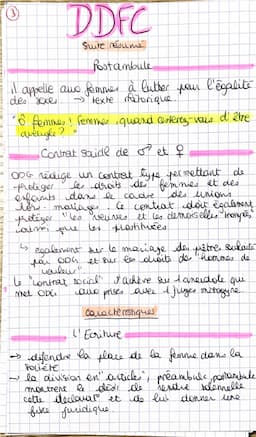 1
DDFC
Suite résumé
Postambule
il appelle aux femmes à lutter pour l'égalité
des sexes. → texte rhétorique
"Ô femmes ! Femmes, quand cesserez-vous d'être
aveugles ? "
Contrat social de ♂ et ♀
ODG rédige un contrat type permettant de
protéger les droits des femmes et des
enfants dans le cadre des unions
hors mariages. Le contrat doit également
protéger "les veuves et les demoiselles trompées"
ainsi que les prostituées
↳ également sur le mariage des prêtres souhaité
par ODG et sur les droits des "hommes de
couleur"
Le "contrat social" s'achève sur 1 anecdote qui
met ODG aux prises avec 1 juge misogyne.
Caractéristiques
L'Ecriture
→ défendre la place de la femme dans la
société.
→ la division en "articles", préambule, postambule
montrent le désir de rendre solennelle
cette déclarat° et de lui donner une
fixe juridique.